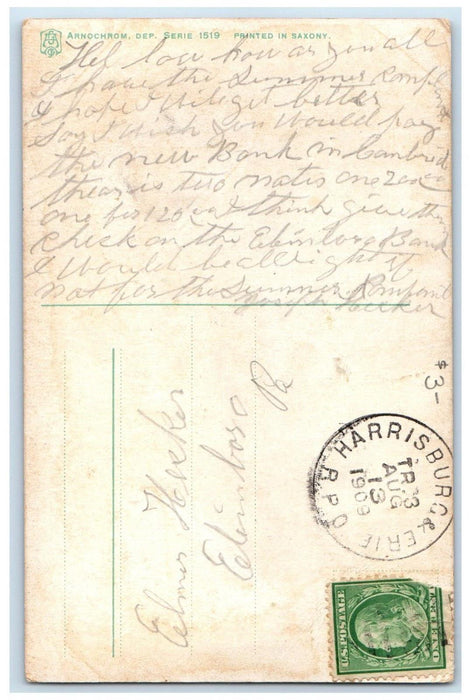 ARNOCHROM, DEP. SERIE 1519 PRINTED IN SAXONY.
Hel low how as you all
I have the Summer Complaint
I hope I Will get better
Say I Wish you Would pay
the new Bank in
thear is two nates one 20
one for 120 and I think give the
check on the Edinboro Bank
I Would be all right if
not for the Summer Complaint
Joseph Hecker
Elmer Hecker
Edinboro
Pa
$3-
HARRISBURG & ERIE R.P.O.
TR 3
AUG
13
1909
U.S. POSTAGE
ONE CENT